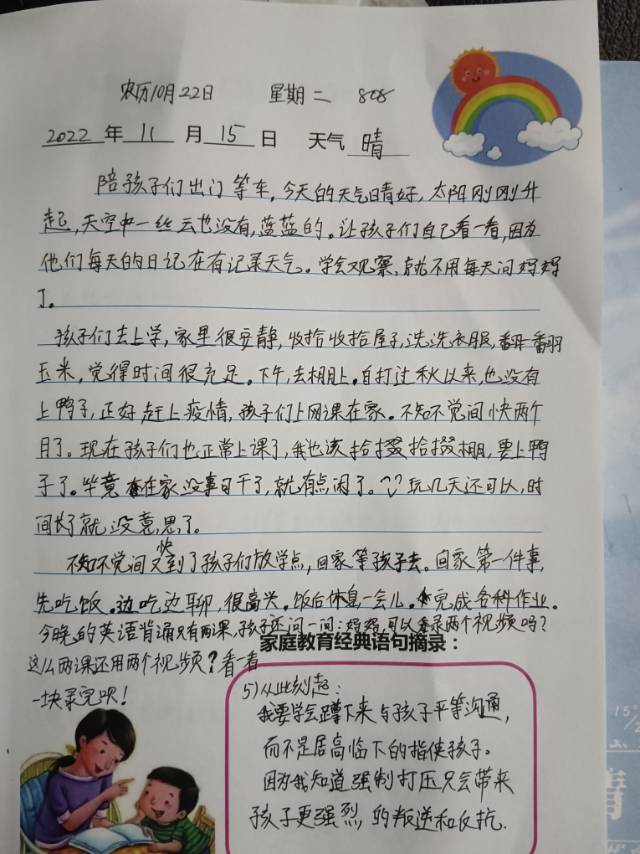 农历10月22日 星期二 808
2022年11月15日 天气晴
陪孩子们出门等车。今天的天气晴好,太阳刚刚升
起,天空中一丝云也没有,蓝蓝的。让孩子们自己看一看,因为
他们每天的日记在有记录天气。学会观察,就不用每天问妈妈
了。
孩子们去上学,家里很安静,收拾收拾屋子,洗洗衣服,翻一翻
玉米,觉得时间很充足。下午,去棚上。自打过秋以来,也没有
上鸭子,正好赶上疫情,孩子们上网课在家。不知不觉间快两个
月了。现在孩子们也正常上课了,我也该拾掇拾掇棚,要上鸭
子了。毕竟在家没事可干了,就有点闲了。玩几天还可以,时
间长了就没意思了。
不知不觉间又快到了孩子们放学点,回家等孩子去。回家第一件事,
先吃饭。边吃边聊,很高兴。饭后休息一会儿。完成各科作业。
今晚的英语背诵只有两课,孩子还问一问:妈妈,可以录两个视频吗?
这么两课还用两个视频?看一看
一块录完呗!
家庭教育经典语句摘录:
5)从此刻起:
我要学会蹲下来与孩子平等沟通,
而不是居高临下的指使孩子。
因为我知道强制打压只会带来
孩子更强烈的叛逆和反抗.
15°